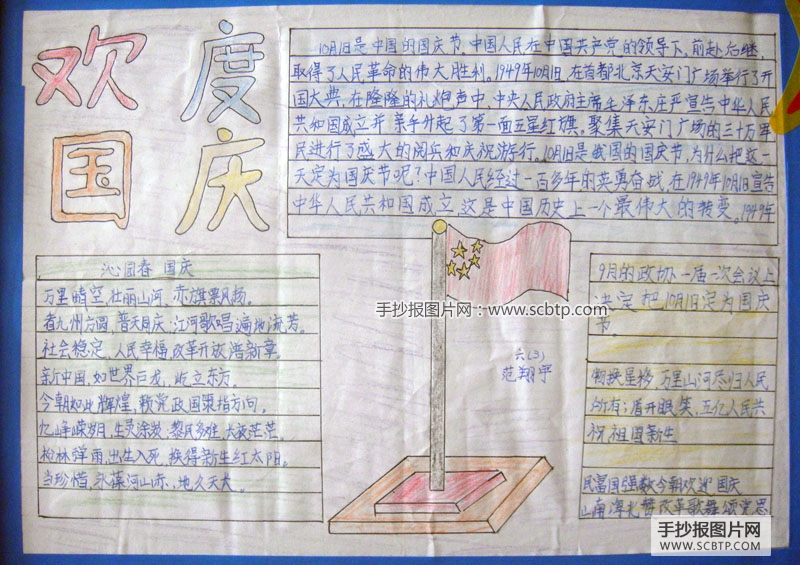 欢度
国庆
10月1日是中国的国庆节,中国人民在中国共产党的领导下,前赴后继,
取得了人民革命的伟大胜利。1949年10月1日,在首都北京天安门广场举行了开
国大典,在隆隆的礼炮声中,中央人民政府主席毛泽东庄严宣告中华人民
共和国成立并亲手升起了第一面五星红旗。聚集天安门广场的三十万军
民进行了盛大的阅兵和庆祝游行。10月1日是我国的国庆节,为什么把这一
天定为国庆节呢?中国人民经过一百多年的英勇奋战,在1949年10月1日宣告
中华人民共和国成立,这是中国历史上一个最伟大的转变。1949年
9月的政协一届一次会议上
决定把10月1日定为国庆
节。
沁园春 国庆
万里晴空,壮丽山河,赤旗飘风扬。
看九州方圆,普天同庆,江河歌唱,遍地流芳。
社会稳定,人民幸福,改革开放谱新章。
新中国,如世界巨龙,屹立东方。
今朝如此辉煌,赖党政国策指方向。
忆峥嵘岁月,生灵涂炭,黎民多难,大夜茫茫。
枪林弹雨,出生入死,换得新生红太阳。
当珍惜,永葆河山赤,地久天长。
六(3)
范翔宇
物换星移,万里山河尽归人民
所有;眉开眼笑,五亿人民共
祝祖国新生
民富国强数今朝欢迎国庆
山南海北赞改革歌舞颂党恩
手抄报图片网:www.scbtp.com
手抄报图片网
WWW.SCBTP.COM